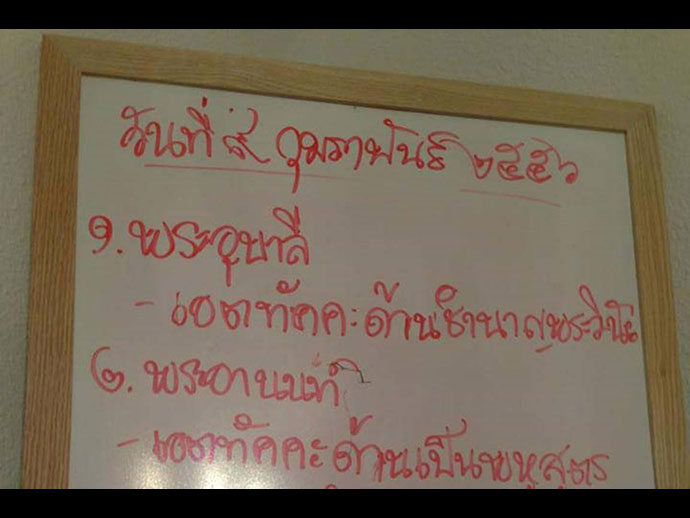 วันที่ ๙ กุมภาพันธ์ ๒๕๕๖
๑. พระอุบาลี
- เอตทัคคะด้านชำนาญพระวินัย
๒. พระอานนท์
- เอตทัคคะด้านเป็นพหูสูตร